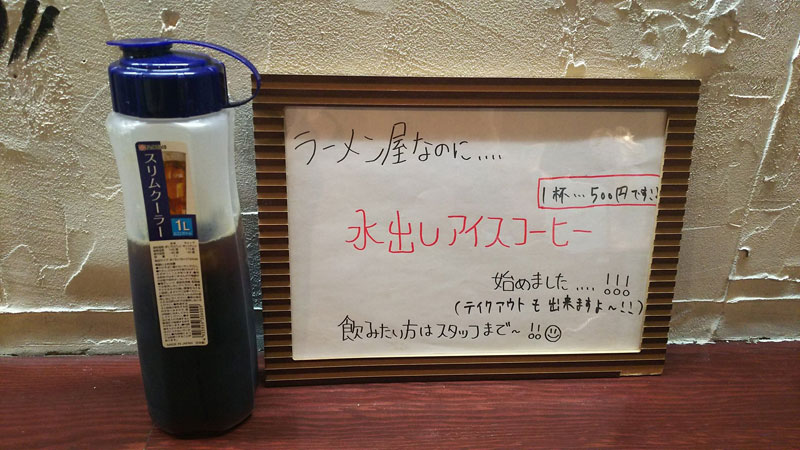 ラーメン屋なのに....
1杯...500円です!!
水出しアイスコーヒー
始めました....!!!
(テイクアウトも出来ますよ〜!!)
飲みたい方はスタッフまで〜!!☺
スリムクーラー
1L